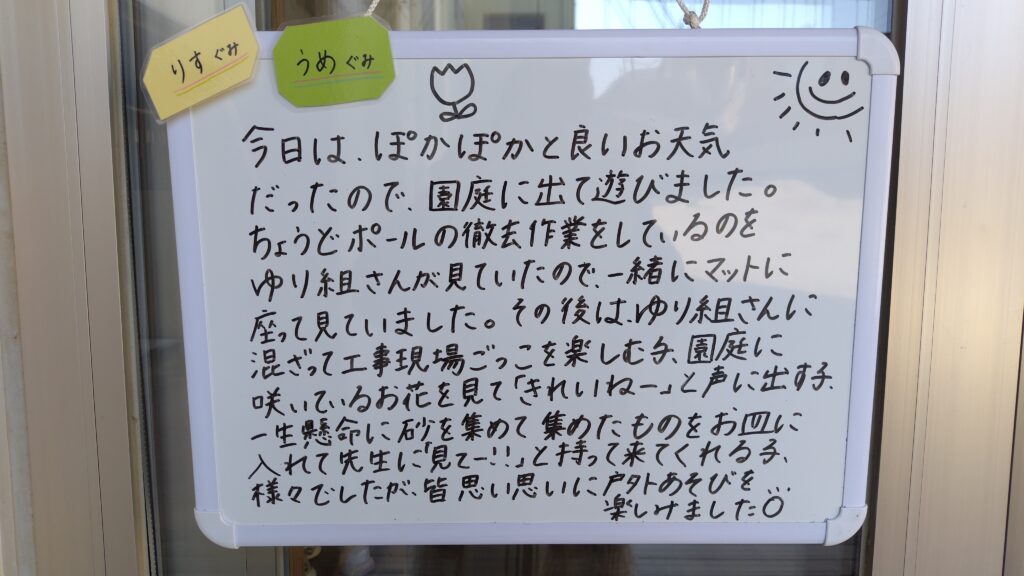 りすぐみ
うめぐみ
今日は、ぽかぽかと良いお天気
だったので、園庭に出て遊びました。
ちょうどポールの徹去作業をしているのを
ゆり組さんが見ていたので、一緒にマットに
座って見ていました。その後は、ゆり組さんに
混ざって工事現場ごっこを楽しむ子、園庭に
咲いているお花を見て「きれいねー」と声に出す子、
一生懸命に砂を集めて集めたものをお皿に
入れて先生に「見てー!!」と持って来てくれる子、
様々でしたが、皆思い思いに戸外あそびを…
楽しみました○